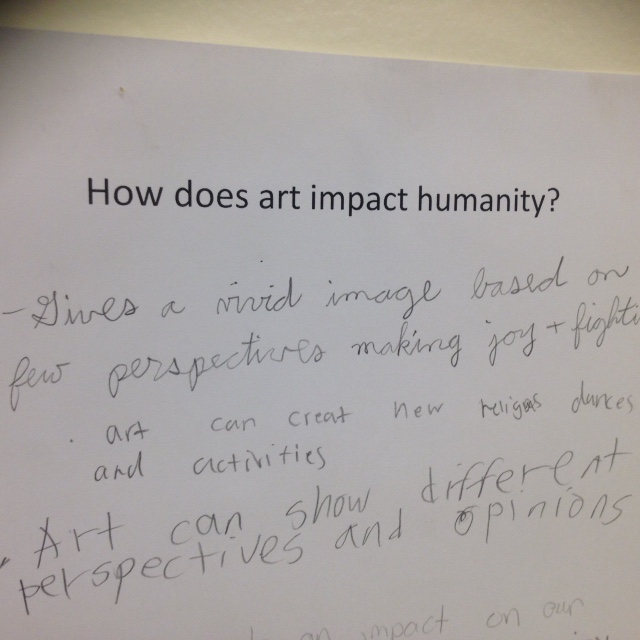 How does art impact humanity?
- Gives a vivid image based on
few perspectives making joy + fighti
. art can creat new religas dances
and activities
. Art can show different
perspectives and opinions
an impact on our